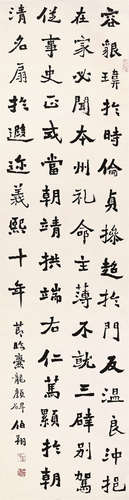 容貌瑋於時倫貞操超於門友温良沖挹
在家必聞本州礼命主薄不就三辟别駕
從事史正式當朝靖拱端右仁篤顯於朝
清名扇於遐迩義熙十年
節臨爨龍顔碑 伯翔